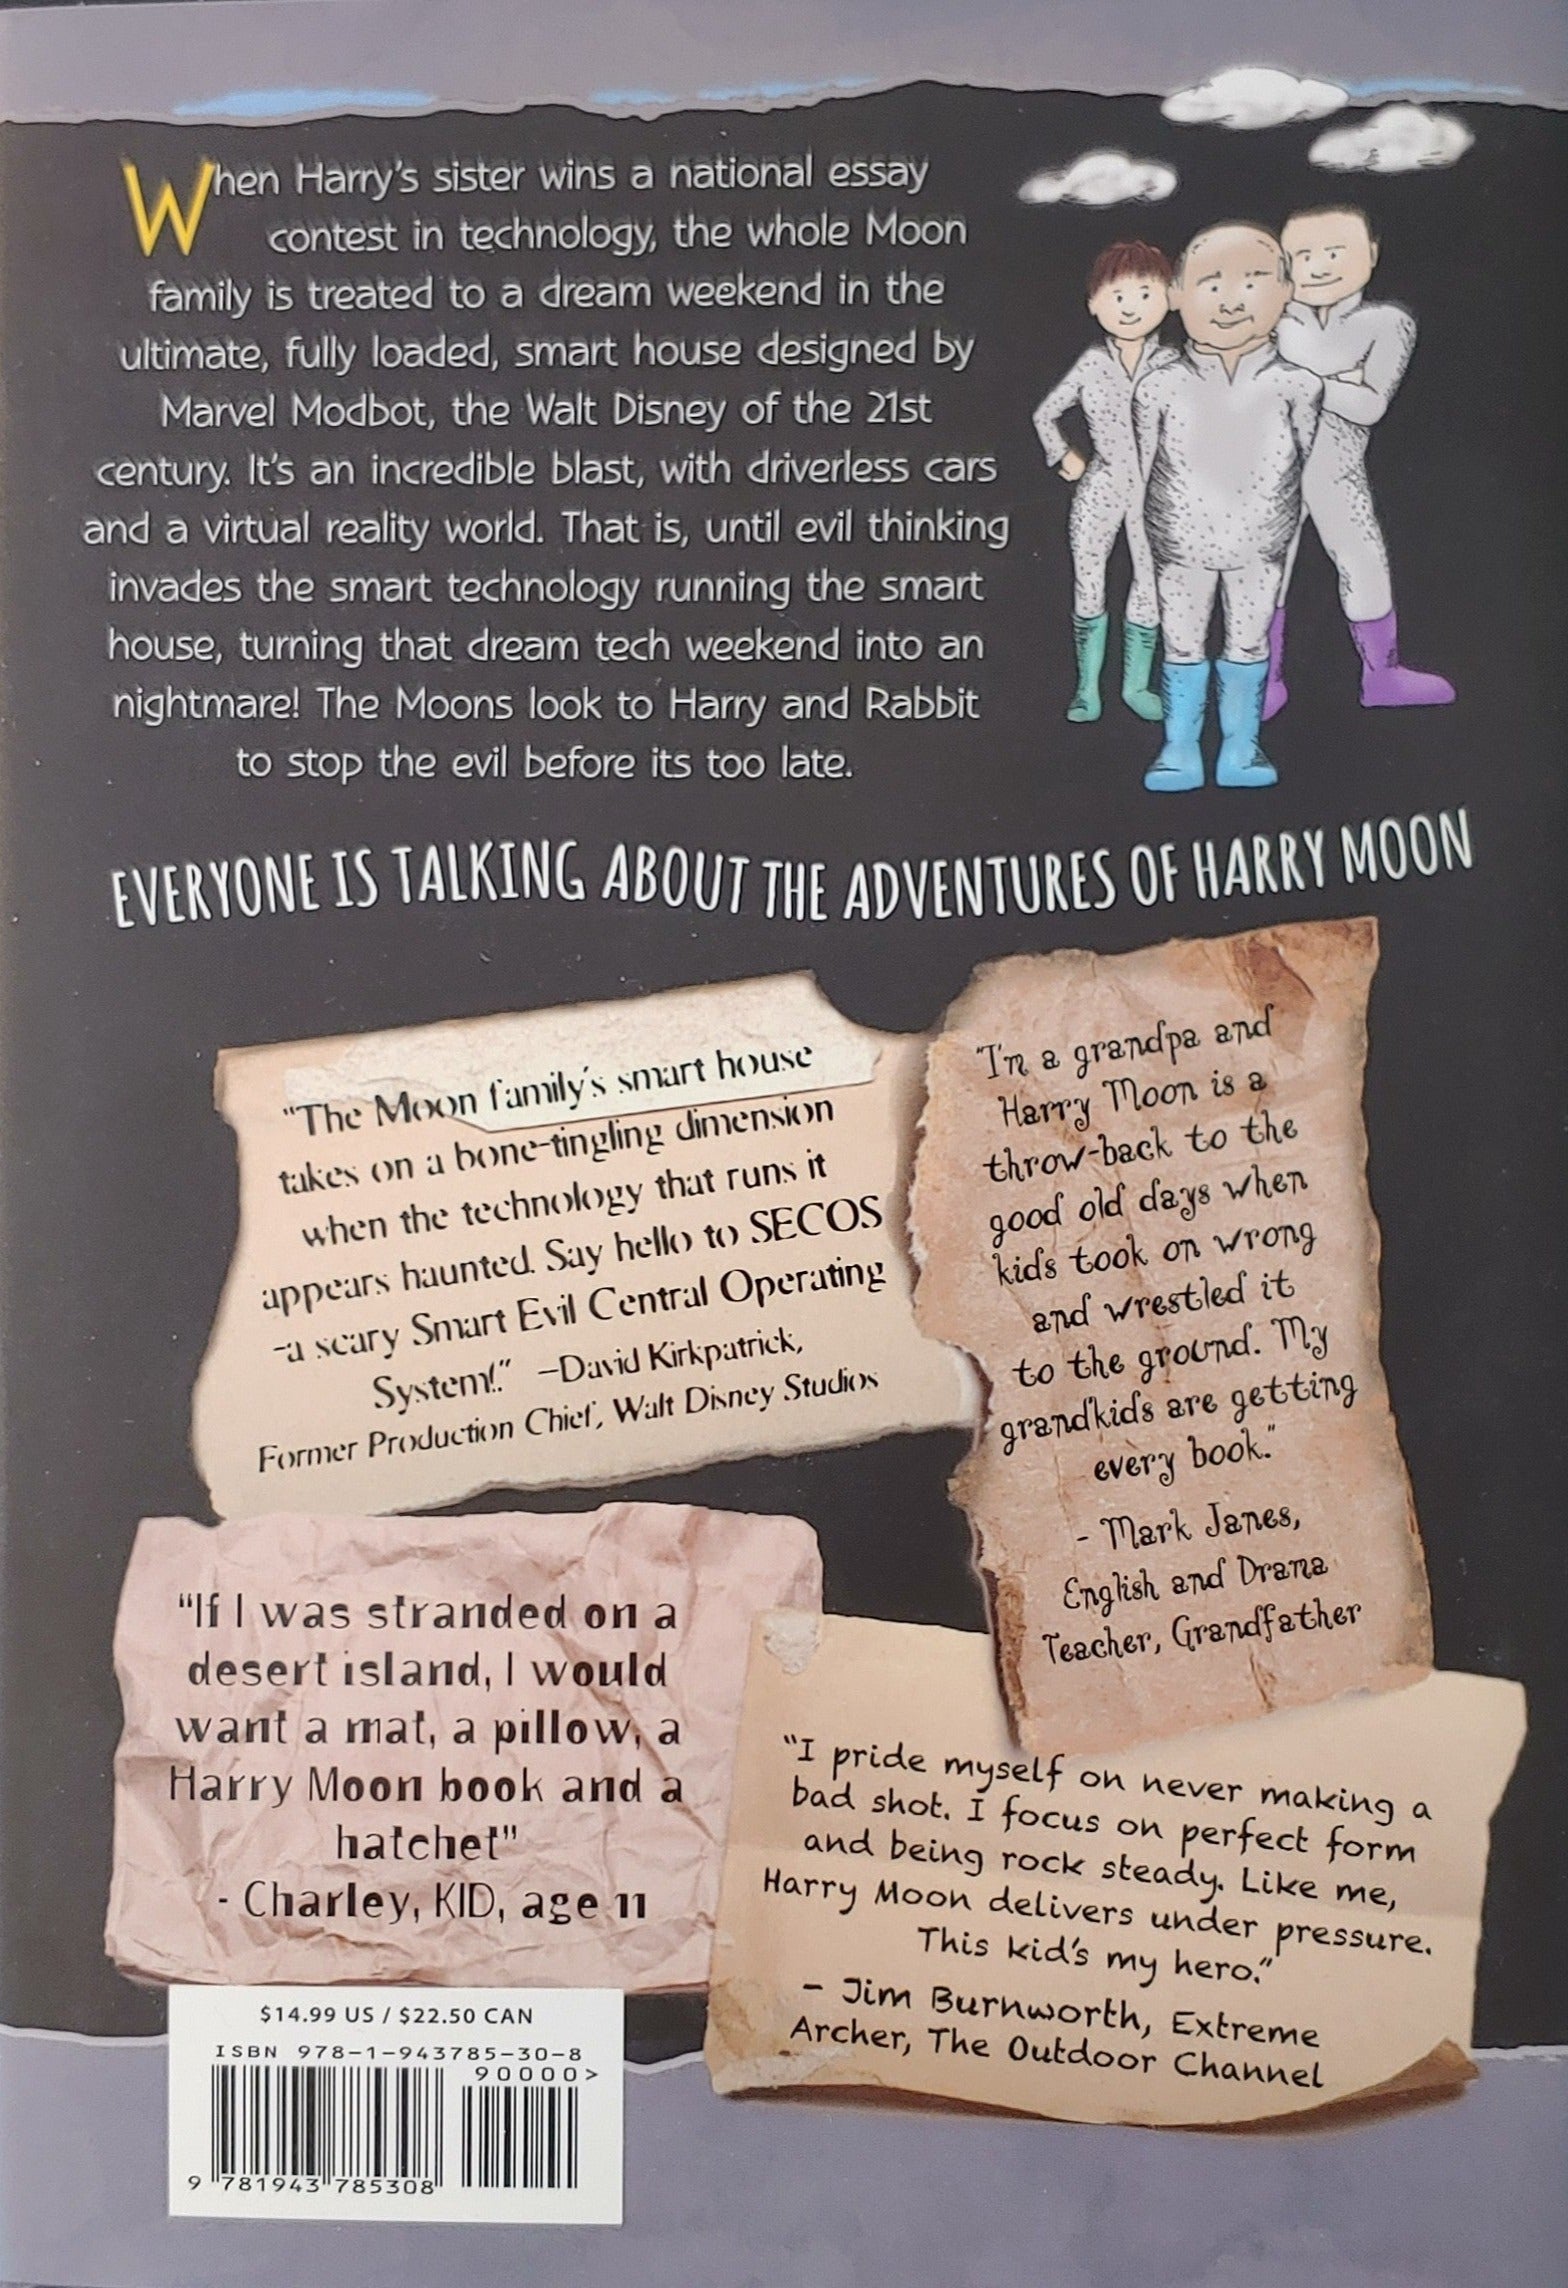 When Harry's sister wins a national essay
contest in technology, the whole Moon
family is treated to a dream weekend in the
ultimate, fully loaded, smart house designed by
Marvel Modbot, the Walt Disney of the 21st
century. It's an incredible blast, with driverless cars
and a virtual reality world. That is, until evil thinking
invades the smart technology running the smart
house, turning that dream tech weekend into an
nightmare! The Moons look to Harry and Rabbit
to stop the evil before its too late.
EVERYONE IS TALKING ABOUT THE ADVENTURES OF HARRY MOON
"The Moon family's smart house
takes on a bone-tingling dimension
when the technology that runs it
appears haunted. Say hello to SECOS
-a scary Smart Evil Central Operating
System!." –David Kirkpatrick,
Former Production Chief, Walt Disney Studios
"I'm a grandpa and
Harry Moon is a
throw-back to the
good old days when
kids took on wrong
and wrestled it
to the ground. My
grandkids are getting
every book."
- Mark Janes,
English and Drama
Teacher, Grandfather
"If I was stranded on a
desert island, I would
want a mat, a pillow, a
Harry Moon book and a
hatchet"
- Charley, KID, age 11
"I pride myself on never making a
bad shot. I focus on perfect form
and being rock steady. Like me,
Harry Moon delivers under pressure.
This kid's my hero."
– Jim Burnworth, Extreme
Archer, The Outdoor Channel
$14.99 US / $22.50 CAN
ISBN 978-1-943785-30-8
90000>
9 781943 785308